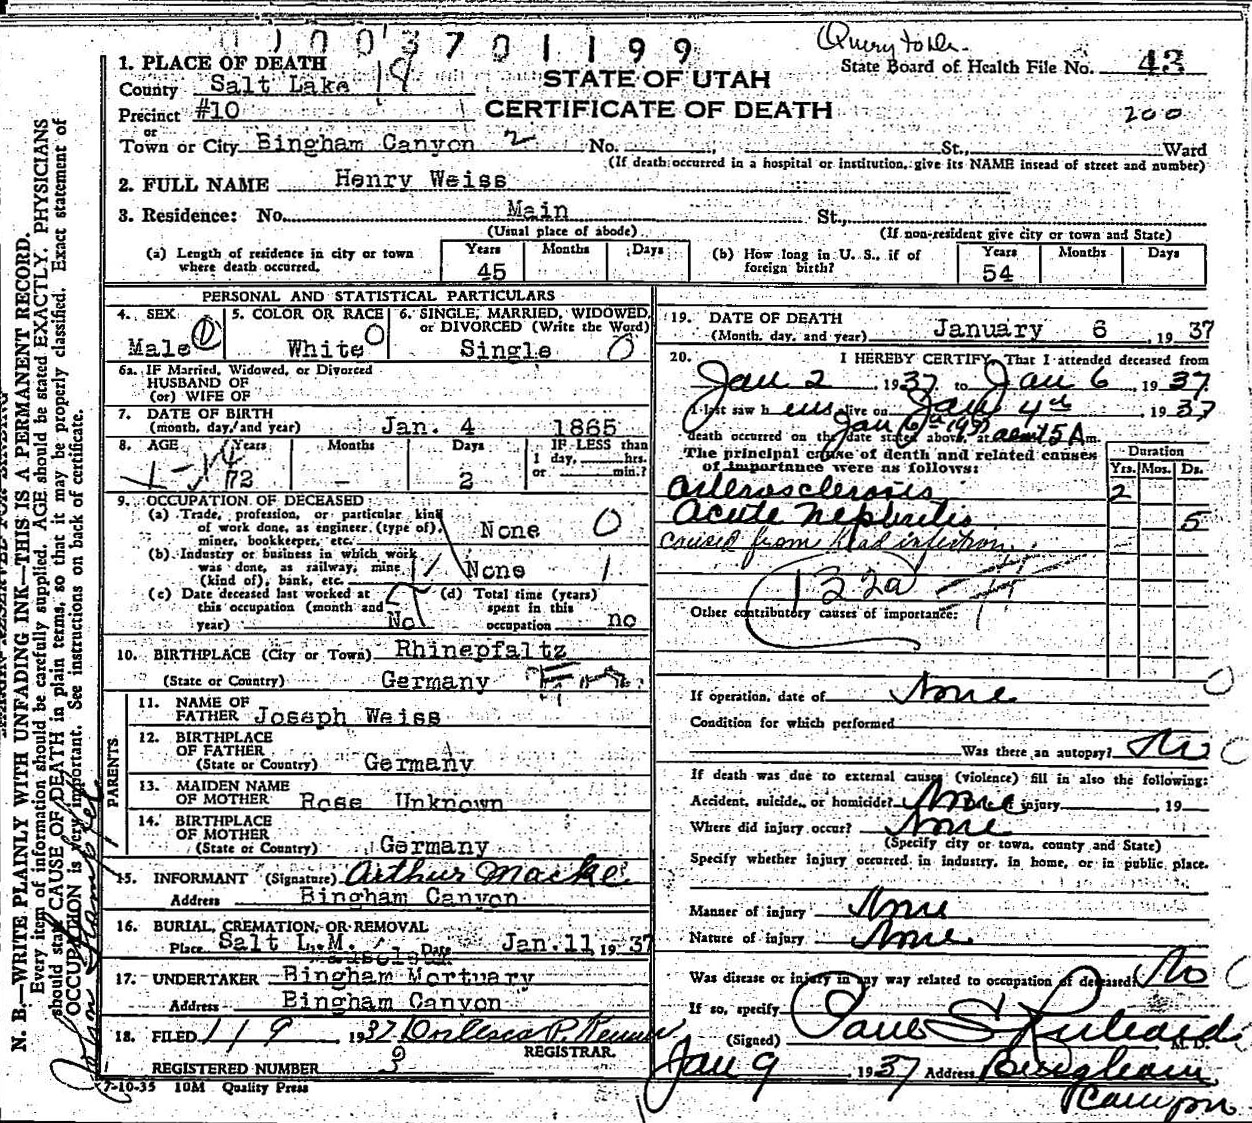 0 1 0 0 3 7 0 1 1 9 9
43
State Board of Health File No.
200
STATE OF UTAH
CERTIFICATE OF DEATH
1. PLACE OF DEATH
County Salt Lake 19
Precinct #10
or
Town or City Bingham Canyon 2 No. St., Ward
(If death occurred in a hospital or institution, give its NAME insead of street and number)
2. FULL NAME Henry Weiss
3. Residence: No. Main St.,
(Usual place of abode) (If non-resident give city or town and State)
(a) Length of residence in city or town where death occurred. Years 45 Months Days
(b) How long in U. S., if of foreign birth? Years 54 Months Days
PERSONAL AND STATISTICAL PARTICULARS
4. SEX Male
5. COLOR OR RACE White 0
6. SINGLE, MARRIED, WIDOWED, or DIVORCED (Write the Word) Single 0
6a. IF Married, Widowed, or Divorced
HUSBAND OF
(or) WIFE OF
7. DATE OF BIRTH
(month, day, and year) Jan. 4 1865
8. AGE Years 72 Months - Days 2 IF LESS than
1 day, hrs.
or min.?
9. OCCUPATION OF DECEASED
(a) Trade, profession, or particular kind
of work done, as engineer (type of),
miner, bookkeeper, etc. None 0
(b) Industry or business in which work
was done, as railway, mine
(kind of), bank, etc. None 1
(c) Date deceased last worked at
this occupation (month and
year) No
(d) Total time (years)
spent in this
occupation no
10. BIRTHPLACE (City or Town) Rhinepfaltz
(State or Country) Germany
PARENTS
11. NAME OF
FATHER Joseph Weiss
12. BIRTHPLACE
OF FATHER
(State or Country) Germany
13. MAIDEN NAME
OF MOTHER Rose Unknown
14. BIRTHPLACE
OF MOTHER
(State or Country) Germany
15. INFORMANT (Signature) Arthur Macke
Address Bingham Canyon
16. BURIAL, CREMATION, OR REMOVAL
Place Salt L.M. Date Jan. 11, 1937
17. UNDERTAKER Bingham Mortuary
Address Bingham Canyon
18. FILED 1 / 9 1937
REGISTRAR.
REGISTERED NUMBER 3
7-10-35 10M Quality Press
19. DATE OF DEATH
(Month, day, and year) January 6, 1937
20. I HEREBY CERTIFY, That I attended deceased from
Jan 2, 1937, to Jan 6, 1937
I last saw h alive on Jan 4th 1937
Jan 6th 1937
death occurred on the date stated above, at about 5 A m.
The principal cause of death and related causes
of importance were as follows:
Duration
Yrs. Mos. Ds.
Arterosclerosis 2
Acute Nephritis 5
caused from head infection
132a
Other contributory causes of importance:
If operation, date of None
Condition for which performed
Was there an autopsy? No
If death was due to external cause (violence) fill in also the following:
Accident, suicide, or homicide? None injury 19
Where did injury occur? None
(Specify city or town, county and State)
Specify whether injury occurred in industry, in home, or in public place.
Manner of injury None
Nature of injury None
Was disease or injury in any way related to occupation of deceased? No
If so, specify
(Signed) Paul S Richards M. D.
Jan 9 1937 Address Bingham
Canyon
N. B.—WRITE PLAINLY WITH UNFADING INK—THIS IS A PERMANENT RECORD.
Every item of information should be carefully supplied. AGE should be stated EXACTLY. PHYSICIANS
should state CAUSE OF DEATH in plain terms, so that it may be properly classified. Exact statement of
OCCUPATION is very important. See instructions on back of certificate.